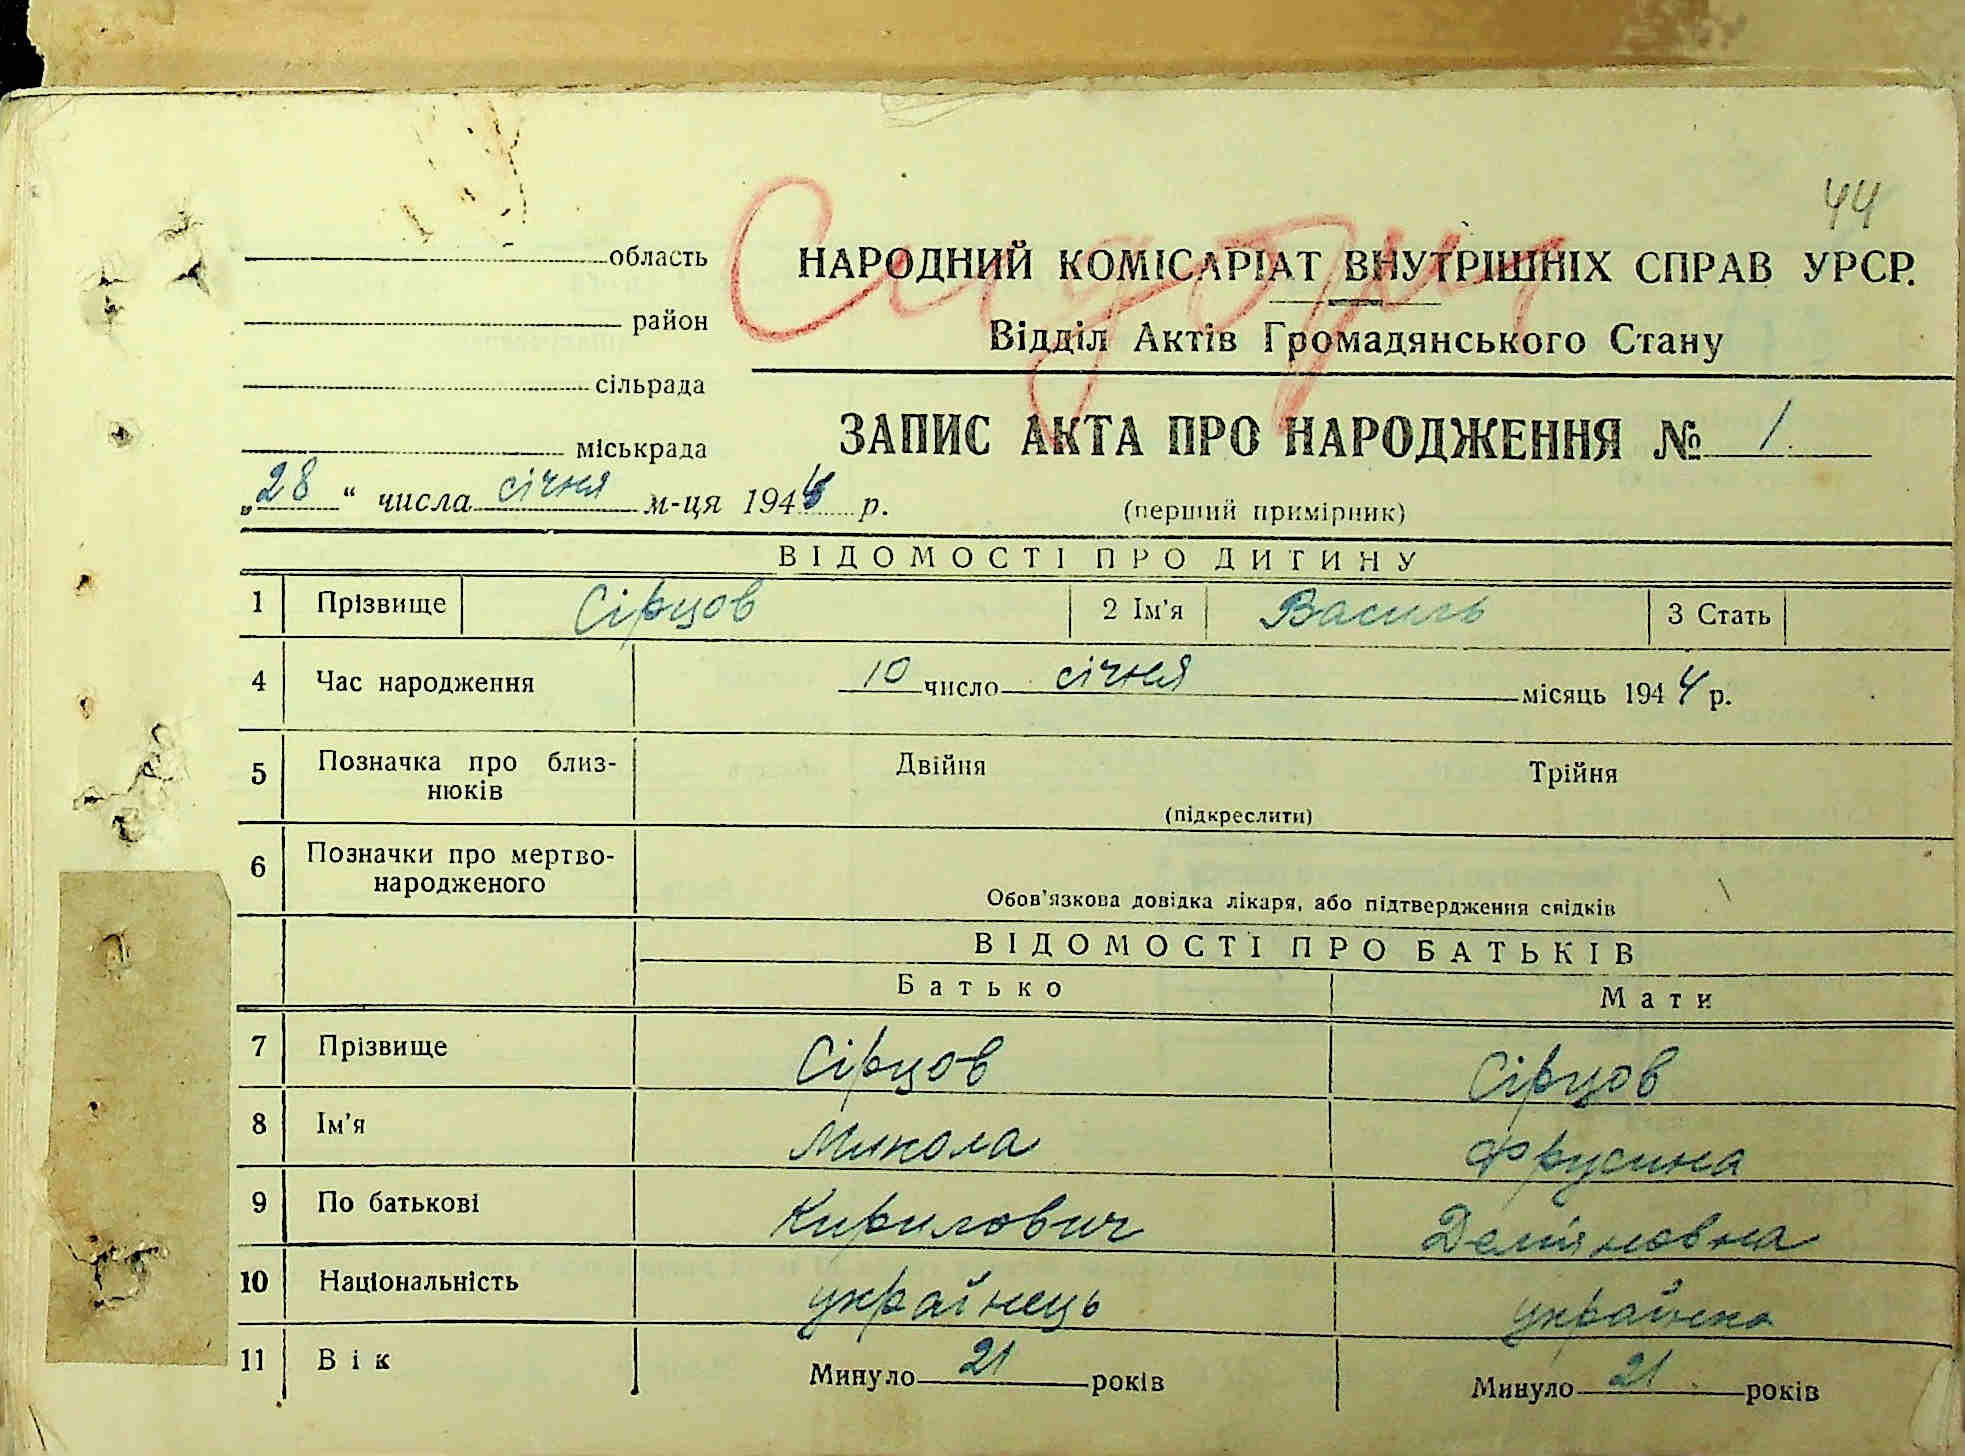 44
область
НАРОДНИЙ КОМІСАРІАТ ВНУТРІШНІХ СПРАВ УРСР.
район
Відділ Актів Громадянського Стану
сільрада
ЗАПИС АКТА ПРО НАРОДЖЕННЯ № 1
міськрада
„28“ числа січня м-ця 1944 р.
(перший примірник)
ВІДОМОСТІ ПРО ДИТИНУ
1 Прізвище Сірцов 2 Ім'я Василь 3 Стать
4 Час народження 10 число січня місяць 1944 р.
5 Позначка про близ- Двійня Трійня
нюків
(підкреслити)
6 Позначки про мертво-
народженого
Обов'язкова довідка лікаря, або підтвердження свідків
ВІДОМОСТІ ПРО БАТЬКІВ
Батько Мати
7 Прізвище Сірцов Сірцов
8 Ім'я Микола Фрусина
9 По батькові Кирилович Дем'яновна
10 Національність українець українка
11 Вік Минуло 21 років Минуло 21 років